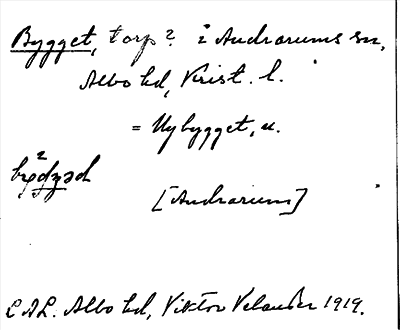 Bygget, torp? i Andrarums sn,
Albo hd, Krist. l.
= Nybygget, u.
[Andrarum]
LAL. Albo hd, Viktor Velander 1919.